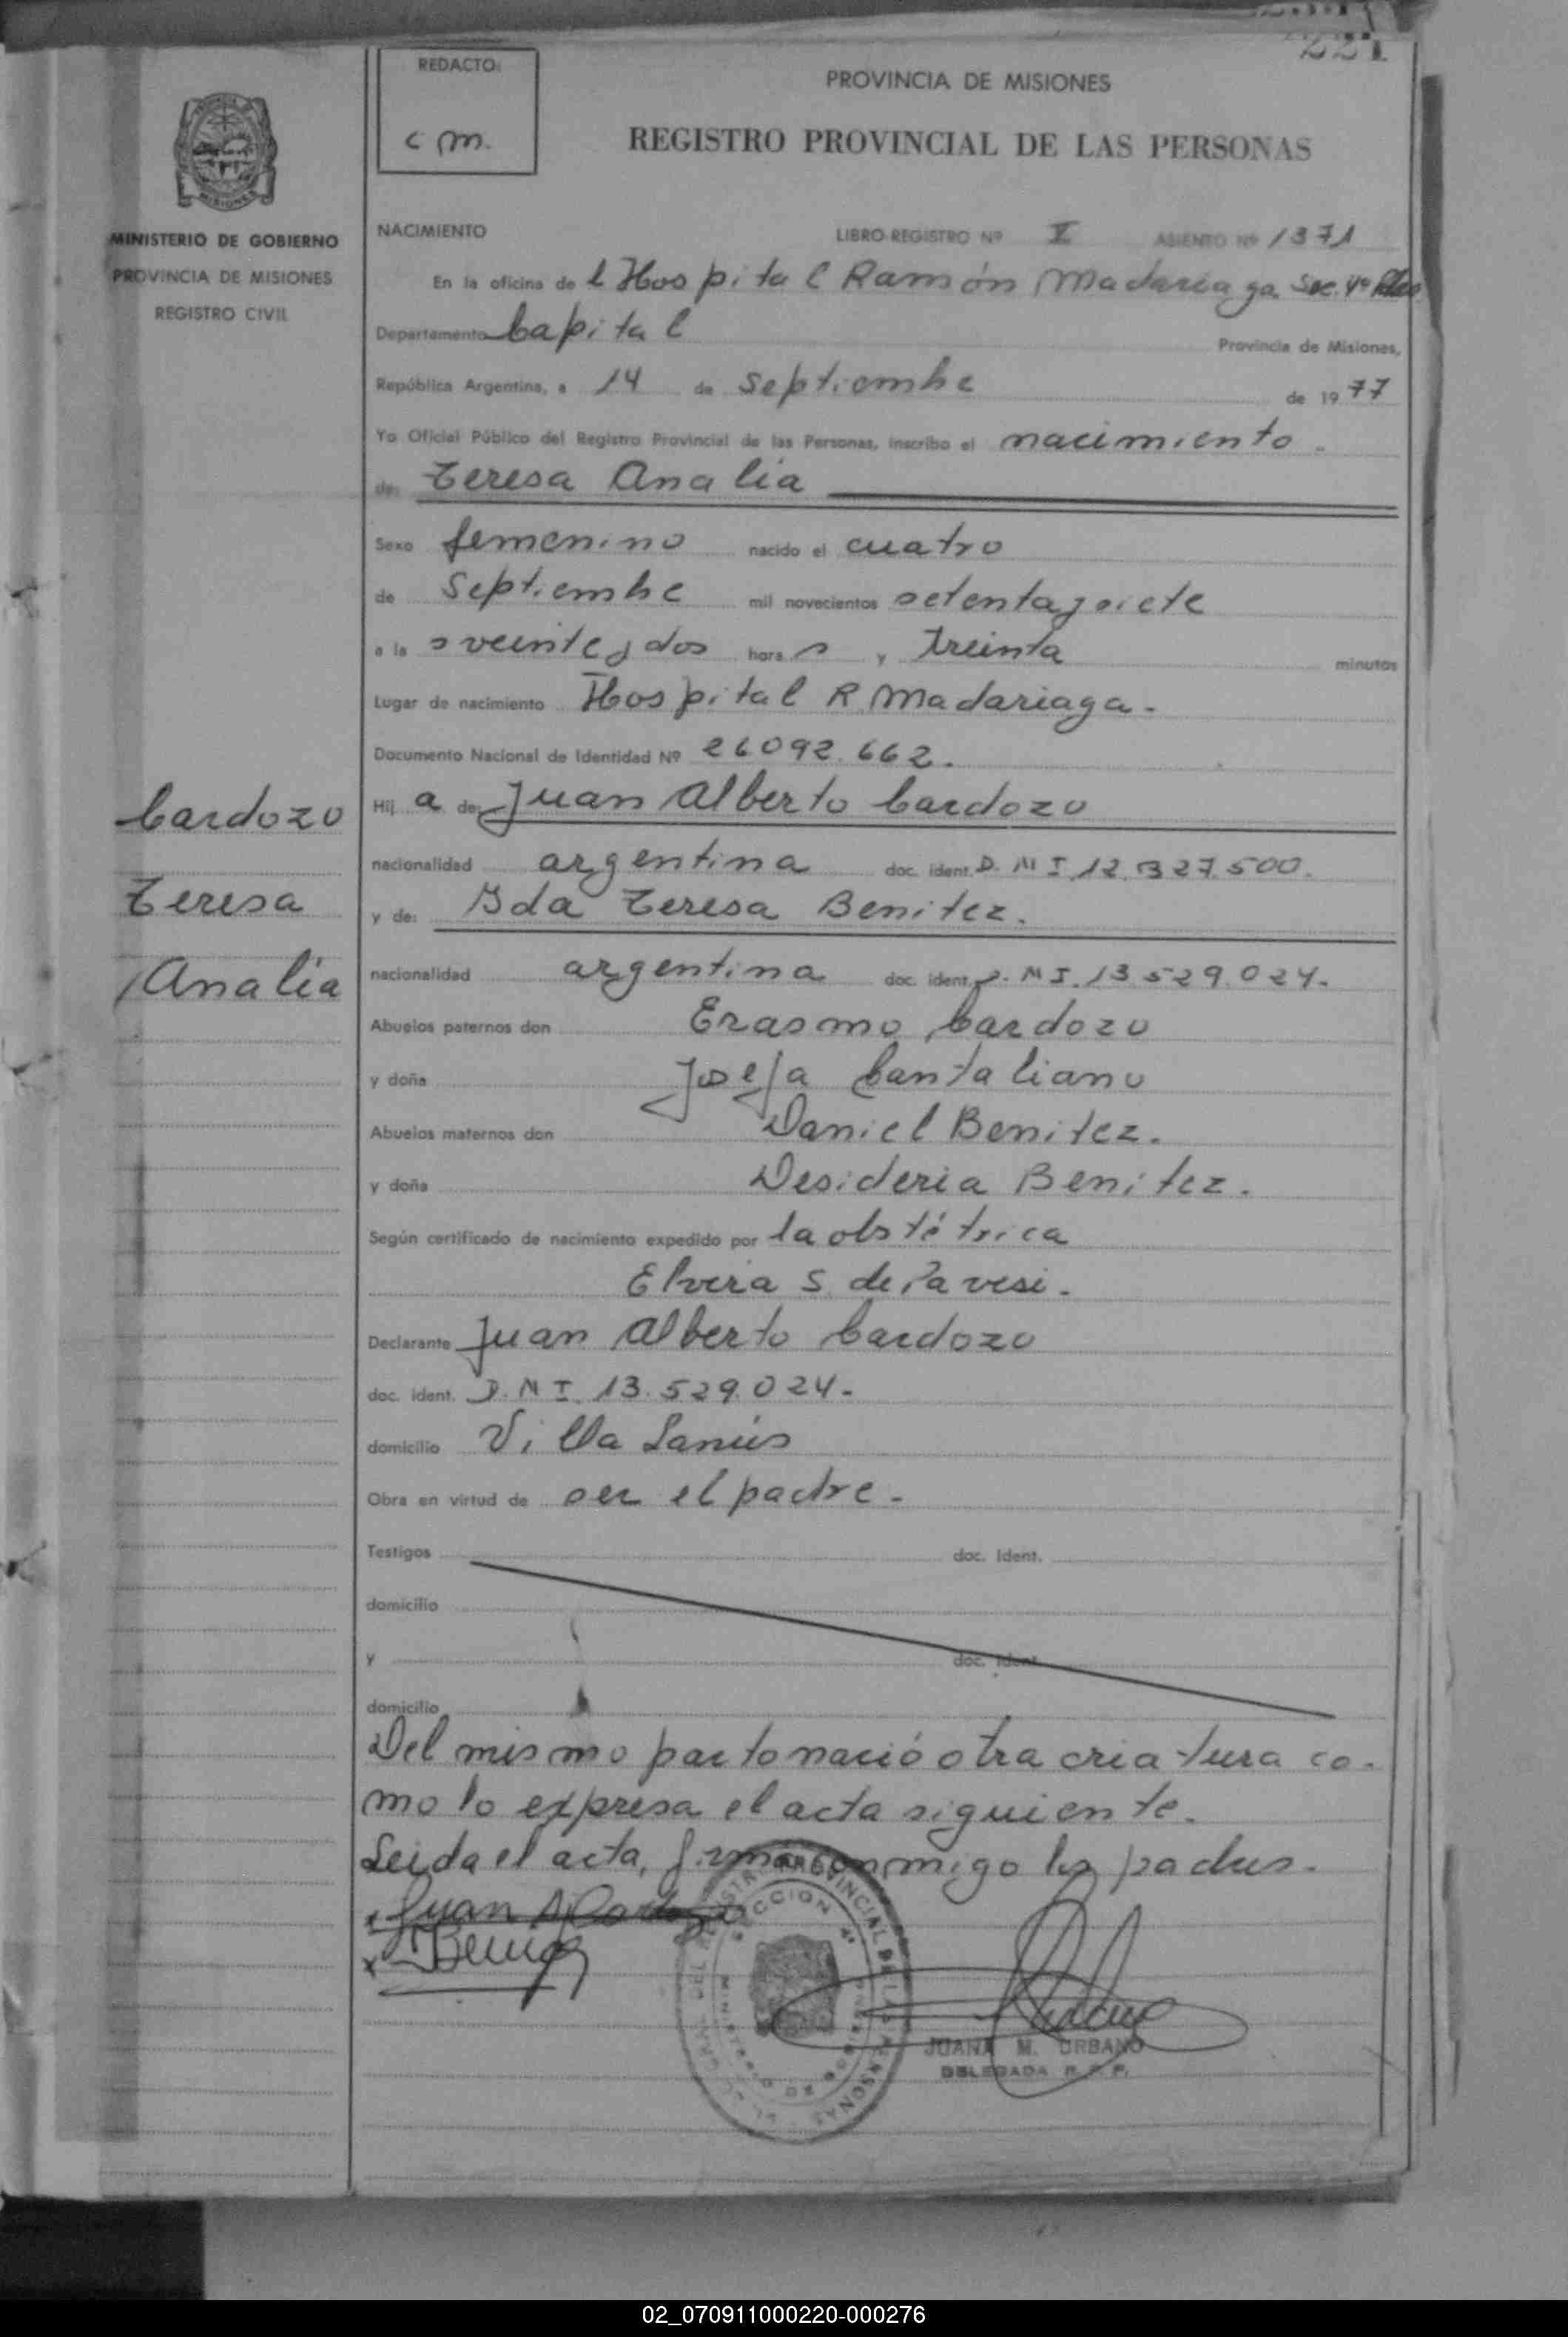 221
REDACTO:
C M.
PROVINCIA DE MISIONES
REGISTRO PROVINCIAL DE LAS PERSONAS
MISIONES
MINISTERIO DE GOBIERNO
PROVINCIA DE MISIONES
REGISTRO CIVIL
NACIMIENTO LIBRO-REGISTRO Nº V ASIENTO Nº 1371
En la oficina de l Hospital Ramón Madariaga Sec. 4ª
Departamento Capital Provincia de Misiones,
República Argentina, a 14 de Septiembre de 1977
Yo Oficial Público del Registro Provincial de las Personas, inscribo el nacimiento.
de: Teresa Analia
Sexo femenino nacido el cuatro
de Septiembre mil novecientos setenta y siete
a la s veinte y dos hora s y treinta minutos
Lugar de nacimiento Hospital R Madariaga.
Documento Nacional de Identidad Nº 26092.662.
Cardozo
Teresa
Analia
Hij a de: Juan Alberto Cardozo
nacionalidad argentina doc. ident. D.N I 12.327.500.
y de: Ida Teresa Benitez.
nacionalidad argentina doc. ident. D.N I. 13 529.024.
Abuelos paternos don Erasmo Cardozo
y doña Josefa Cantaliano
Abuelos maternos don Daniel Benitez.
y doña Desideria Benitez.
Según certificado de nacimiento expedido por la obstétrica
Elvira S. de Pavesi.
Declarante Juan Alberto Cardozo
doc. ident. D.N I. 13.529.024.
domicilio Villa Lanús
Obra en virtud de ser el padre.
Testigos doc. Ident.
domicilio
y doc. Ident.
domicilio
Del mismo parto nació otra criatura co-
mo lo expresa el acta siguiente.
Leida el acta, firman conmigo los padres.
Juan A Cardozo
REGISTRO PROVINCIAL DE LAS PERSONAS
SECCION 4ª
MINISTERIO DE GOBIERNO
JUANA M. URBANO
DELEGADA R. P. P.
02_070911000220-000276